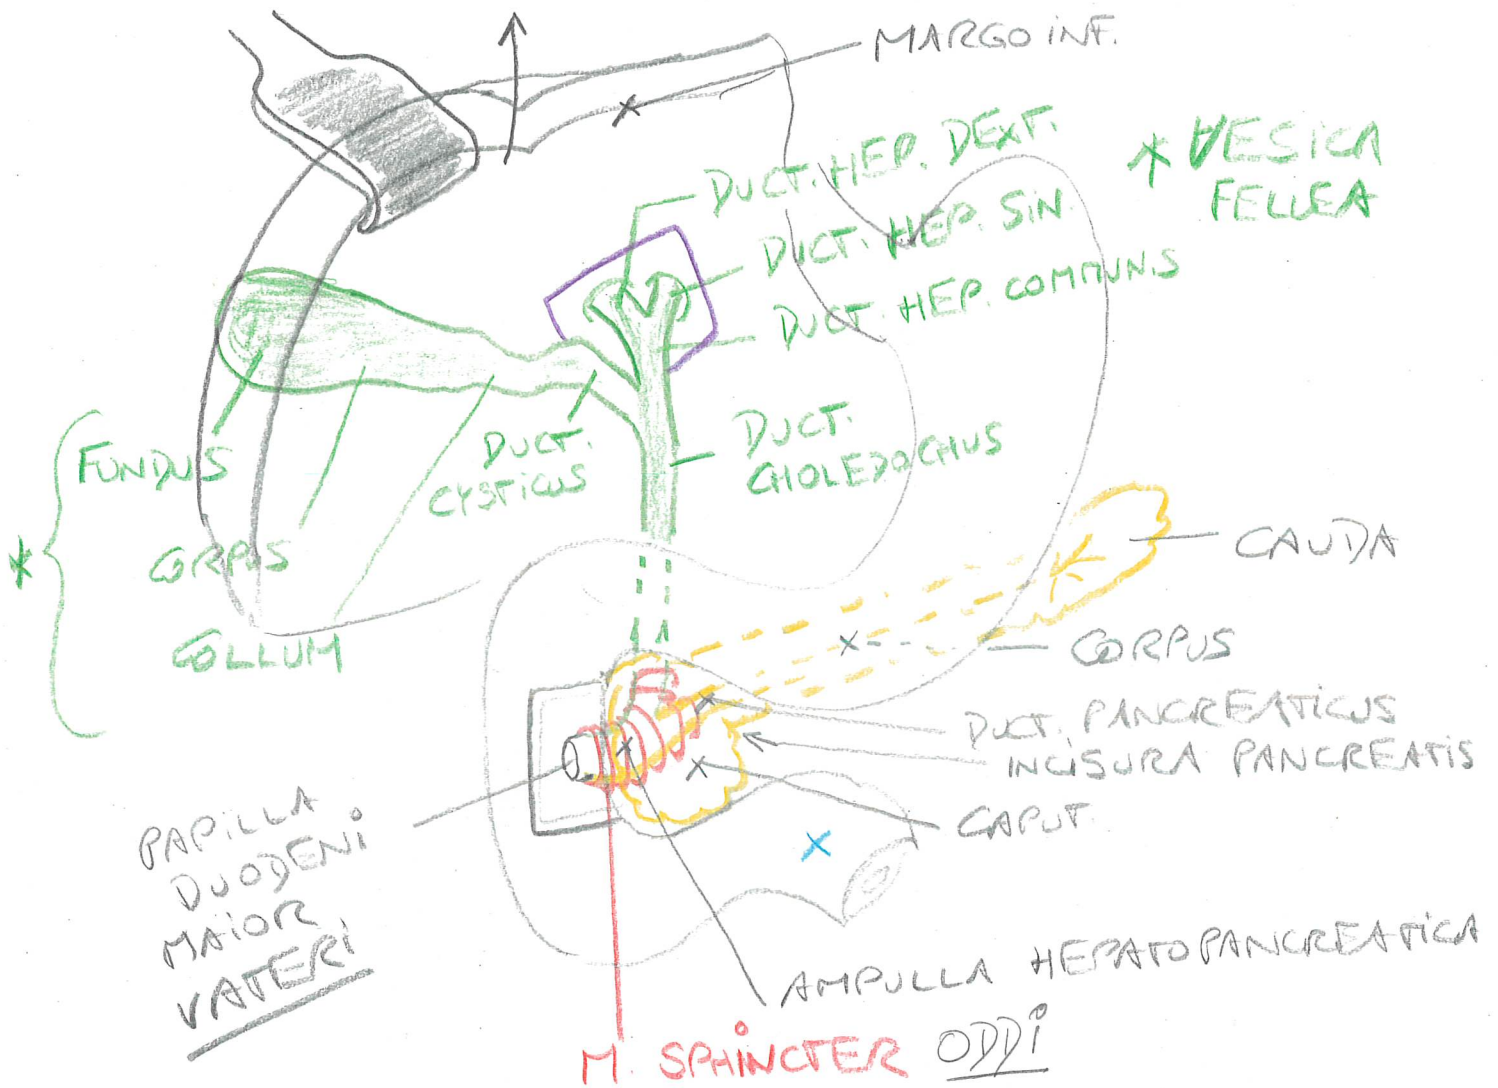 MARGO INF.
DUCT. HEP. DEXT.
* VESICA
FELLEA
DUCT. HEP. SIN.
DUCT. HEP. COMMUNIS
FUNDUS
CORPUS
COLLUM
*
DUCT.
CYSTICUS
DUCT.
CHOLEDOCHUS
CAUDA
CORPUS
DUCT. PANCREATICUS
INCISURA PANCREATIS
CAPUT.
PAPILLA
DUODENI
MAIOR
VATERI
AMPULLA HEPATOPANCREATICA
M. SPHINCTER ODDI